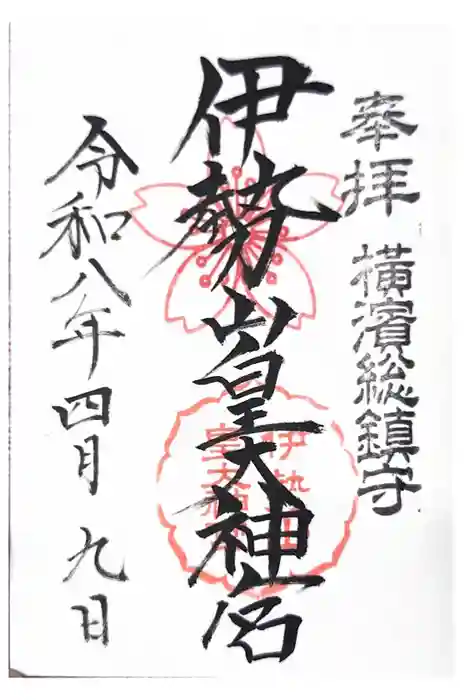 奉拝
横濱総鎮守
伊勢山皇大神宮
伊勢山
皇大神宮
令和八年四月九日